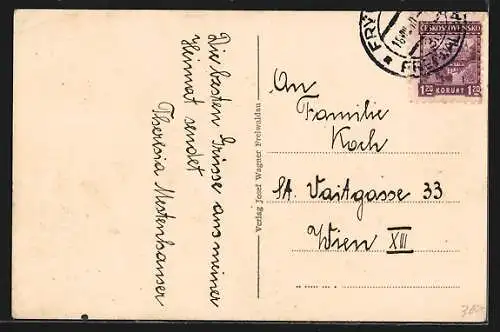 Die besten Grüsse aus meiner
Heimat sendet
Theresia Mestenhauser
Verlag Josef Wagner Freiwaldau
ČESKOSLOVENSKO
1.20 KORUNY 1.20
An
Familie
Koch
St. Vaitgasse 33
Wien XIII